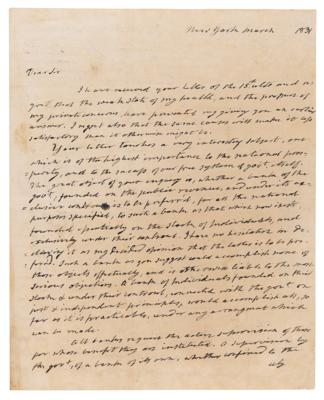 New York March 1831
Dear Sir
I have received your letter of the 15th ulto and re
gret that the weak state of my health, and the pressure of
my private concerns, have prevented my giving you an earlier
answer. I regret also that the same causes will make it less
satisfactory than it otherwise might be.
Your letter touches a very interesting subject, one
which is of the highest importance to the national pros-
perity, and to the success of our free system of govt. itself.
The great object of your enquiry is, whether a bank of the
govt., founded on the public revenue, and under its ex-
clusive controul is to be preferred, for all the national
purposes specified, to such a bank as that which now exists,
founded partly on the stock of Individuals, and
exclusively under their controul. I have no hesitation in de-
claring it as my decided opinion that the latter is to be pre-
ferred. Such a bank as you suggest could accomplish none of
those objects effectually, and is otherwise liable to the most
serious objections. A bank of Individuals founded on their
stock & under their controul, connected with the govt. on
just & independent principles, would accomplish all, so
far as it is practicable, under any arrangment which
can be made.
All banks request the active supervision of those
for whose benefit they are instituted. A supervision by
the govt., of a bank of its own, whether confined to the